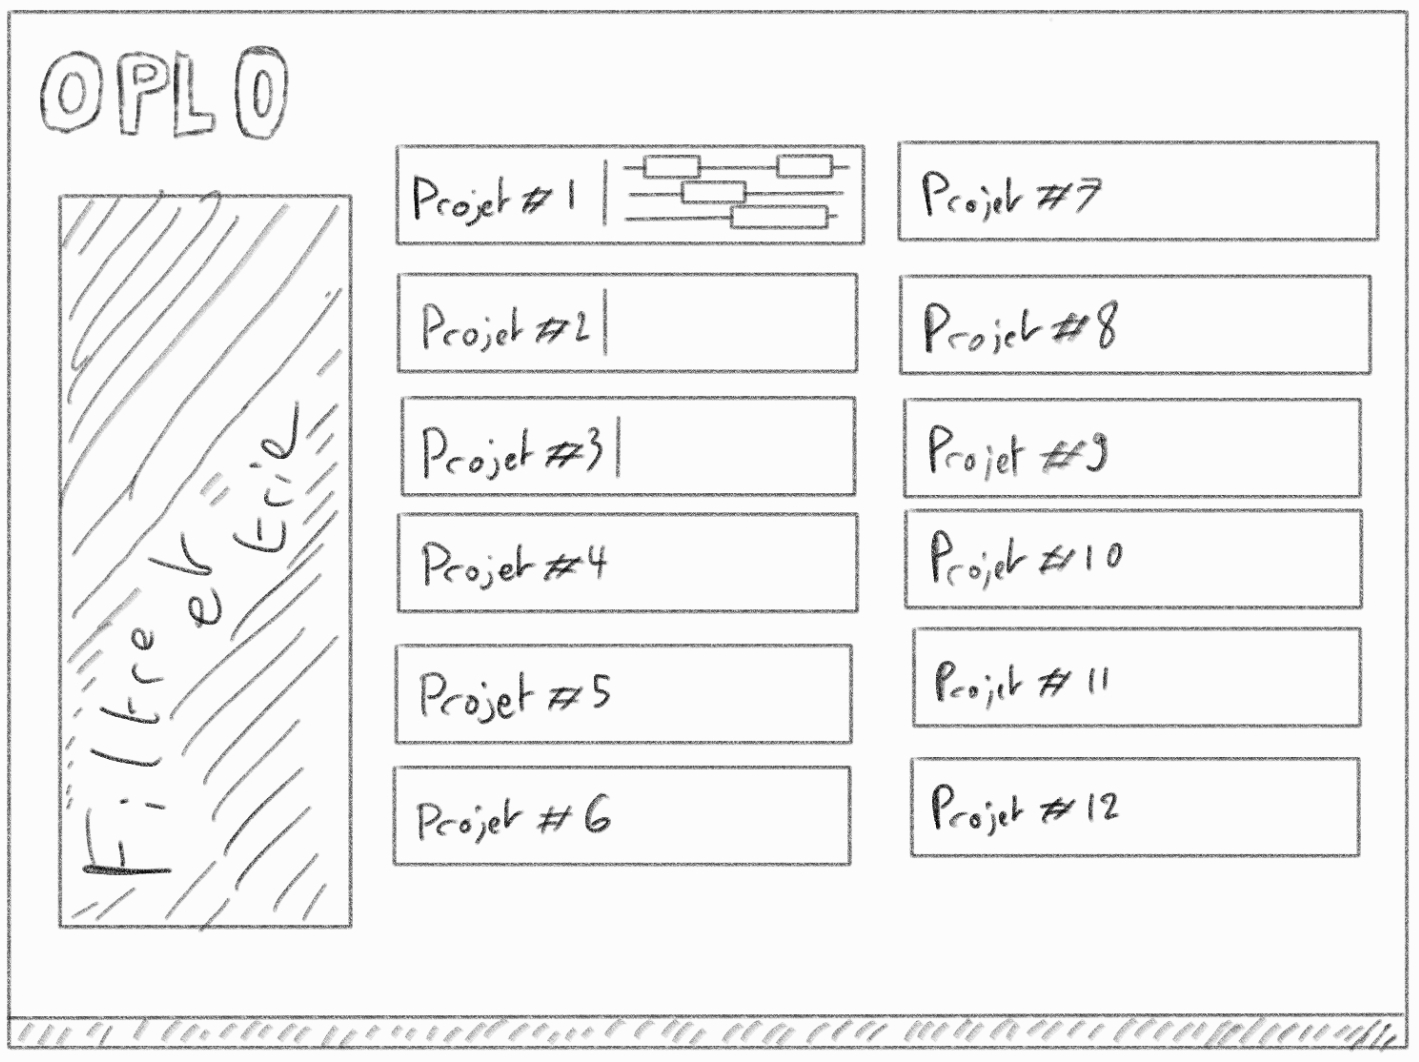 OPLO
Filtre et trie
Projet #1
Projet #2
Projet #3
Projet #4
Projet #5
Projet #6
Projet #7
Projet #8
Projet #9
Projet #10
Projet #11
Projet #12